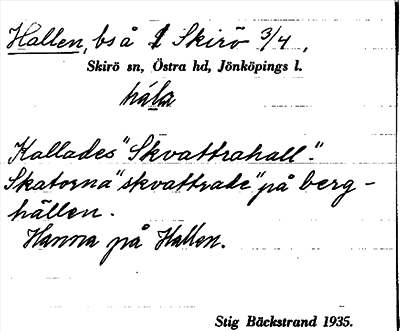 Hallen, bs å Skirö 3/4,
Skirö sn, Östra hd, Jönköpings l.
hála
Kallades "Skvattrahall".
Skatorna "skvattrade" på berg-
hällen.
Hanna på Hallen.
Stig Bäckstrand 1935.